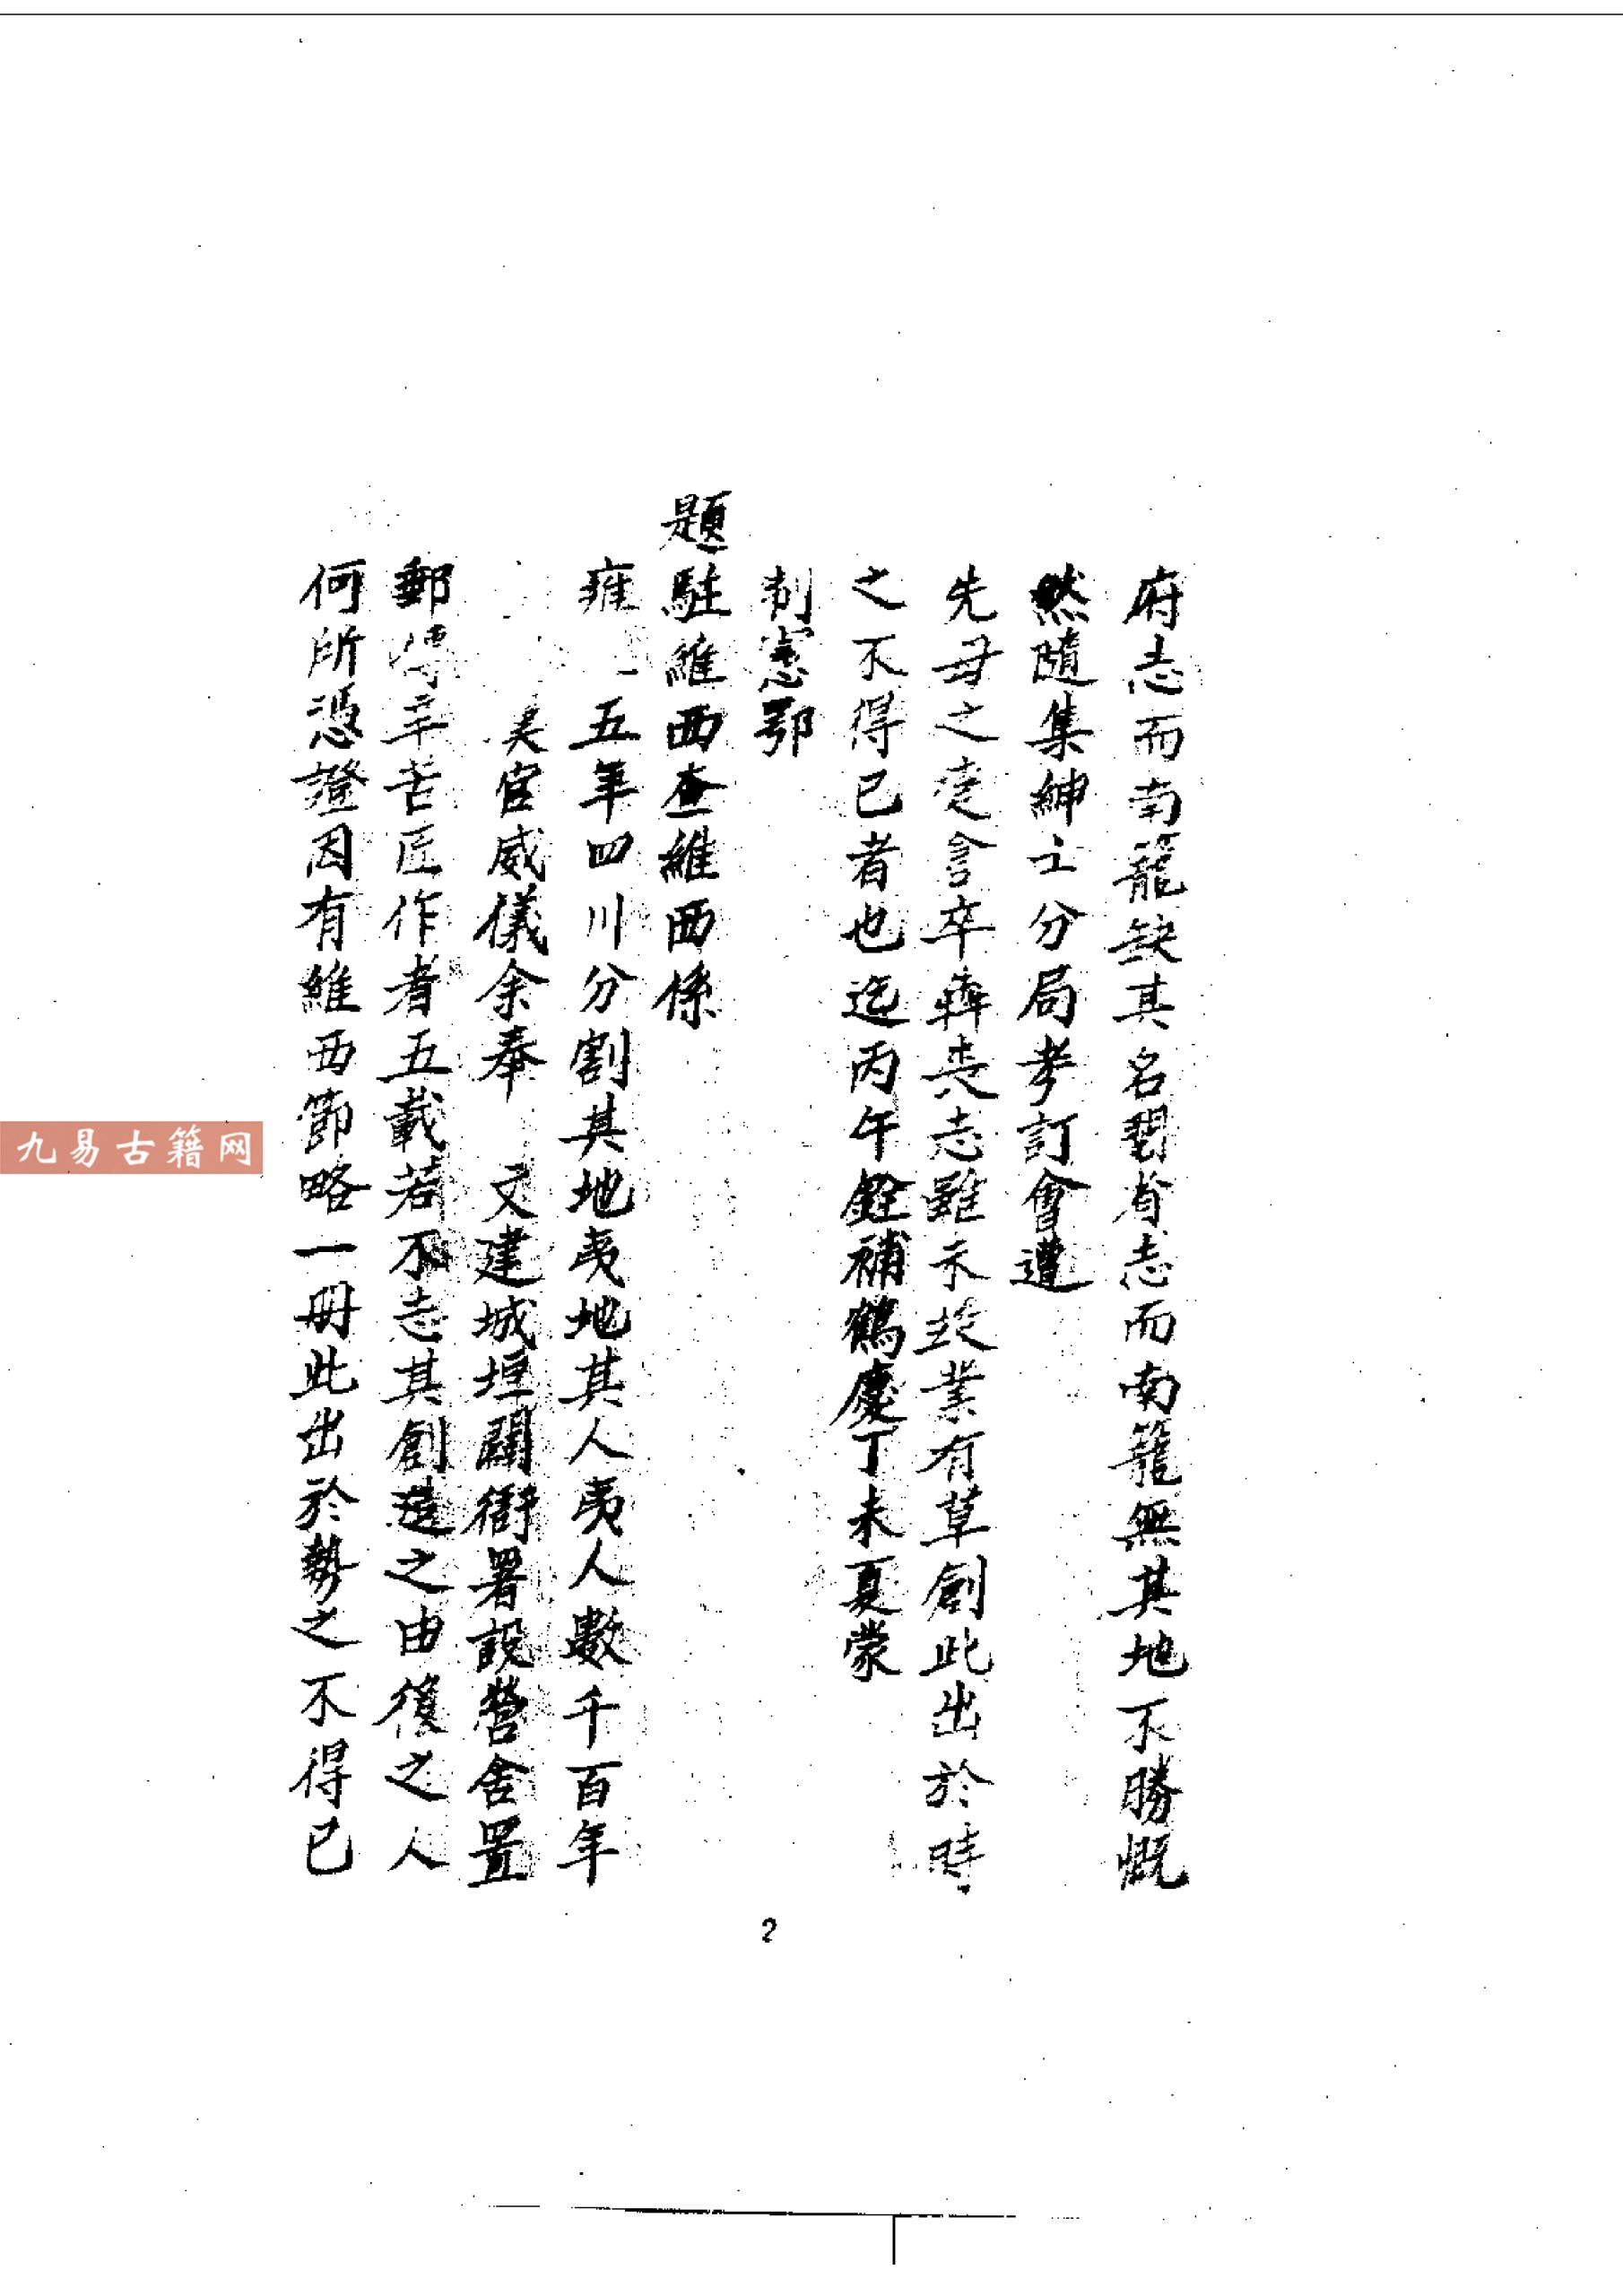 府志而南籠缺其名閱省志而南籠無其地不勝慨
然隨集紳士分局考訂會遭
先母之變倉卒犇喪志雖未竣業有草創此出於時
之不得已者也迄丙午銓補鶴慶丁未夏蒙
制憲鄂
題駐維西查維西係
雍 五年四川分割其地夷地其人夷人數千百年
官威儀余奉 文建城垣闢衙署設營舍置
郵傳辛苦匠作者五載若不志其創造之由後之人
何所憑證因有維西節略一冊此出於勢之不得已
2
九易古籍网